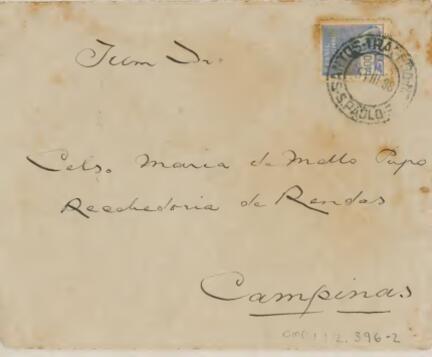 Illm Dr.
SANTOS-TRAFEGO
S. PAULO
Celso Maria de Mello Pupo
Recebedoria de Rendas
Campinas
112.396-2